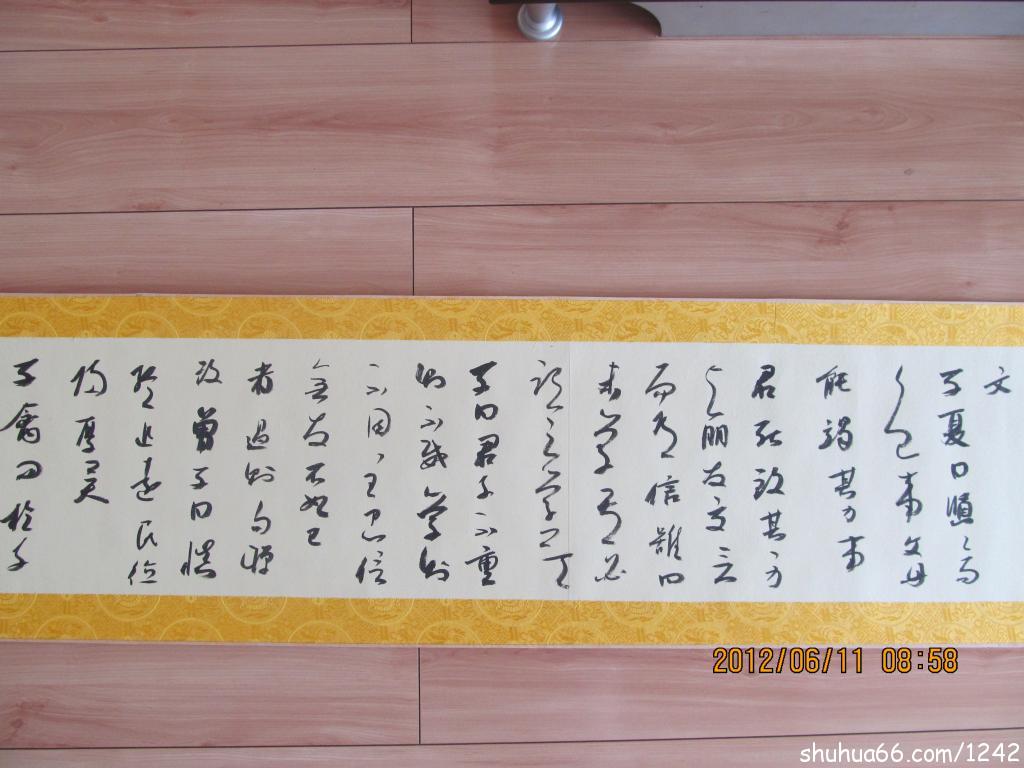 文
子夏曰賢〻易
色事父母
能竭其力事
君能致其身
与朋友交言
而有信雖曰
未學吾必
謂之學矣
子曰君子不重
則不威學則
不固主忠信
無友不如己
者過則勿憚
改曾子曰慎
終追遠民德
歸厚矣
子禽問於子
2012/06/11 08:58
shuhua66.com/1242